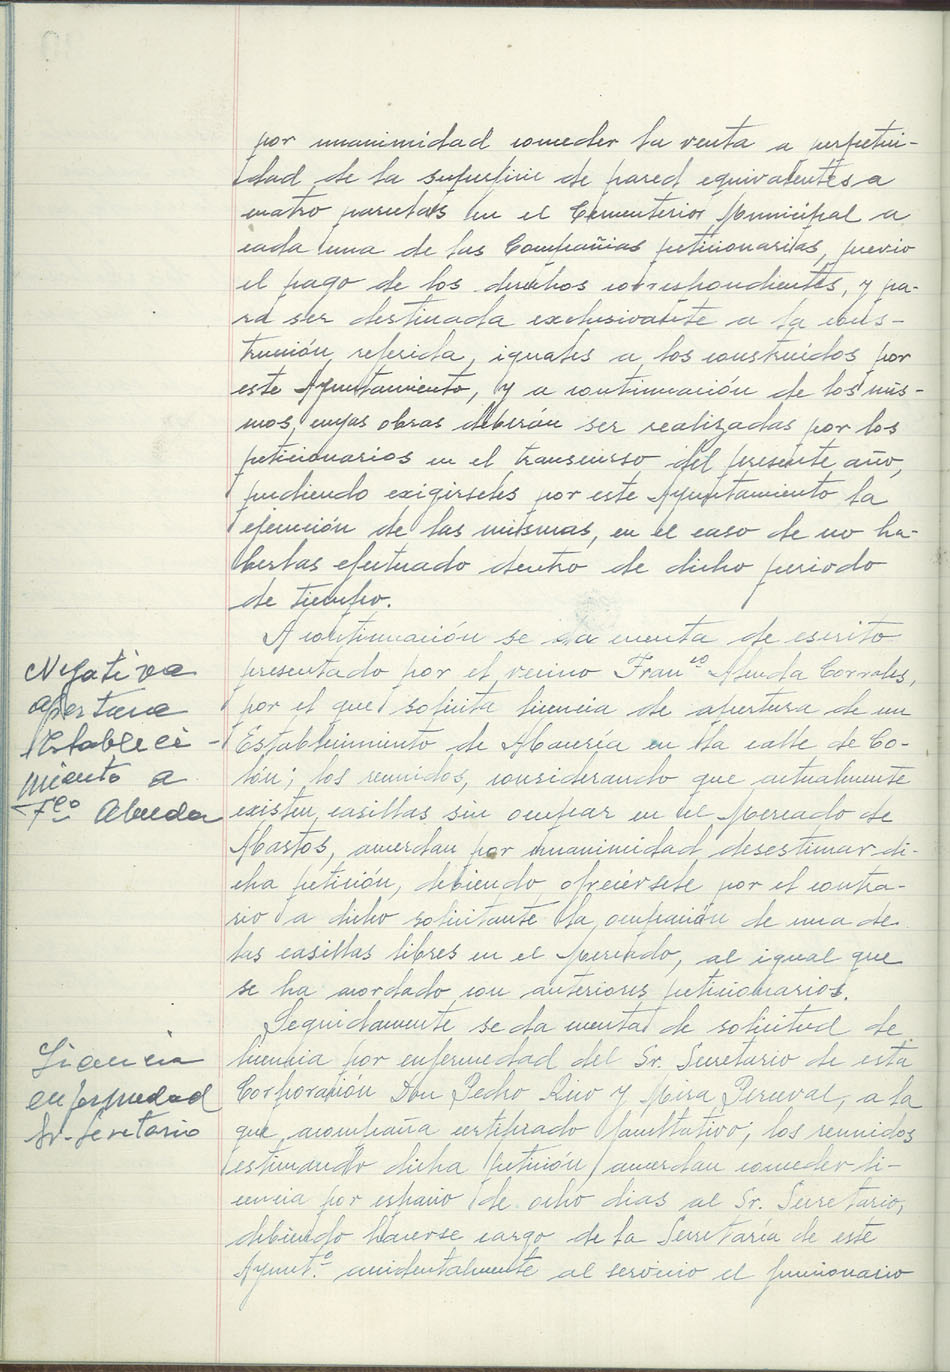 por unanimidad conceder la venta a perpetui-
dad de la superficie de pared equivalentes a
cuatro panteones en el Cementerio Municipal a
cada una de las Compañias peticionarias, previo
el pago de los derechos correspondientes, y pa-
ra ser destinada exclusivamente a la cons-
trucción referida, iguales a los construídos por
este Ayuntamiento, y a continuación de los mis-
mos, cuyas obras deberán ser realizadas por los
peticionarios en el transcurso del presente año,
pudiendo exigirseles por este Ayuntamiento la
ejecución de las mismas, en el caso de no ha-
berlas efectuado dentro de dicho periodo
de tiempo.
A continuación se da cuenta de escrito
Negativa
apertura
Estableci-
miento a
Fco Abuda
presentado por el vecino Franco Corrales,
por el que solicita licencia de apertura de un
Establecimiento de Abacería en la calle de Co-
lón; los reunidos, considerando que actualmente
existen casillas sin ocupar en el Mercado de
Abastos, acuerdan por unanimidad desestimar di-
cha petición, debiendo ofrecérsele por el contra-
rio a dicho solicitante la ocupación de una de
las casillas libres en el Mercado, al igual que
se ha acordado con anteriores peticionarios.
Seguidamente se da cuenta de solicitud de
Licencia
enfermedad
Sr. Secretario
licencia por enfermedad del Sr. Secretario de esta
Corporación Don Pedro Rico y Mira Perceval, a la
que acompaña certificado facultativo; los reunidos
estimando dicha petición acuerdan conceder li-
cencia por espacio de ocho dias al Sr. Secretario,
debiendo hacerse cargo de la Secretaría de este
Ayunt.o accidentalmente al servicio el funcionario